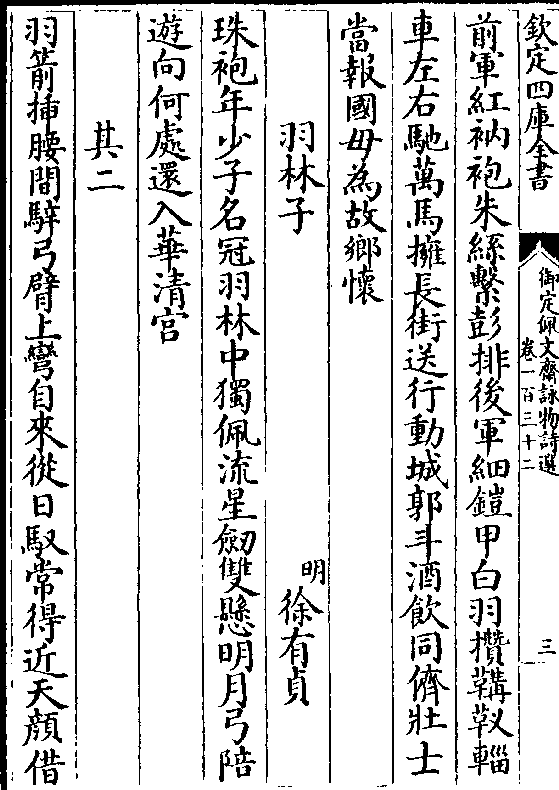 欽定四庫全書
御定佩文齋詠物詩選
卷一百三十二
三
前軍紅衲袍朱絲繫彭排後軍細鎧甲白羽攢鞲靫輜
車左右馳萬馬擁長街送行動城郭斗酒飲同儕壯士
當報國毋為故鄉懷
羽林子
明
徐有貞
珠袍年少子名冠羽林中獨佩流星劒雙懸明月弓陪
遊向何處還入華清宫
其二
羽箭插腰間騂弓臂上彎自來從日馭常得近天顔借